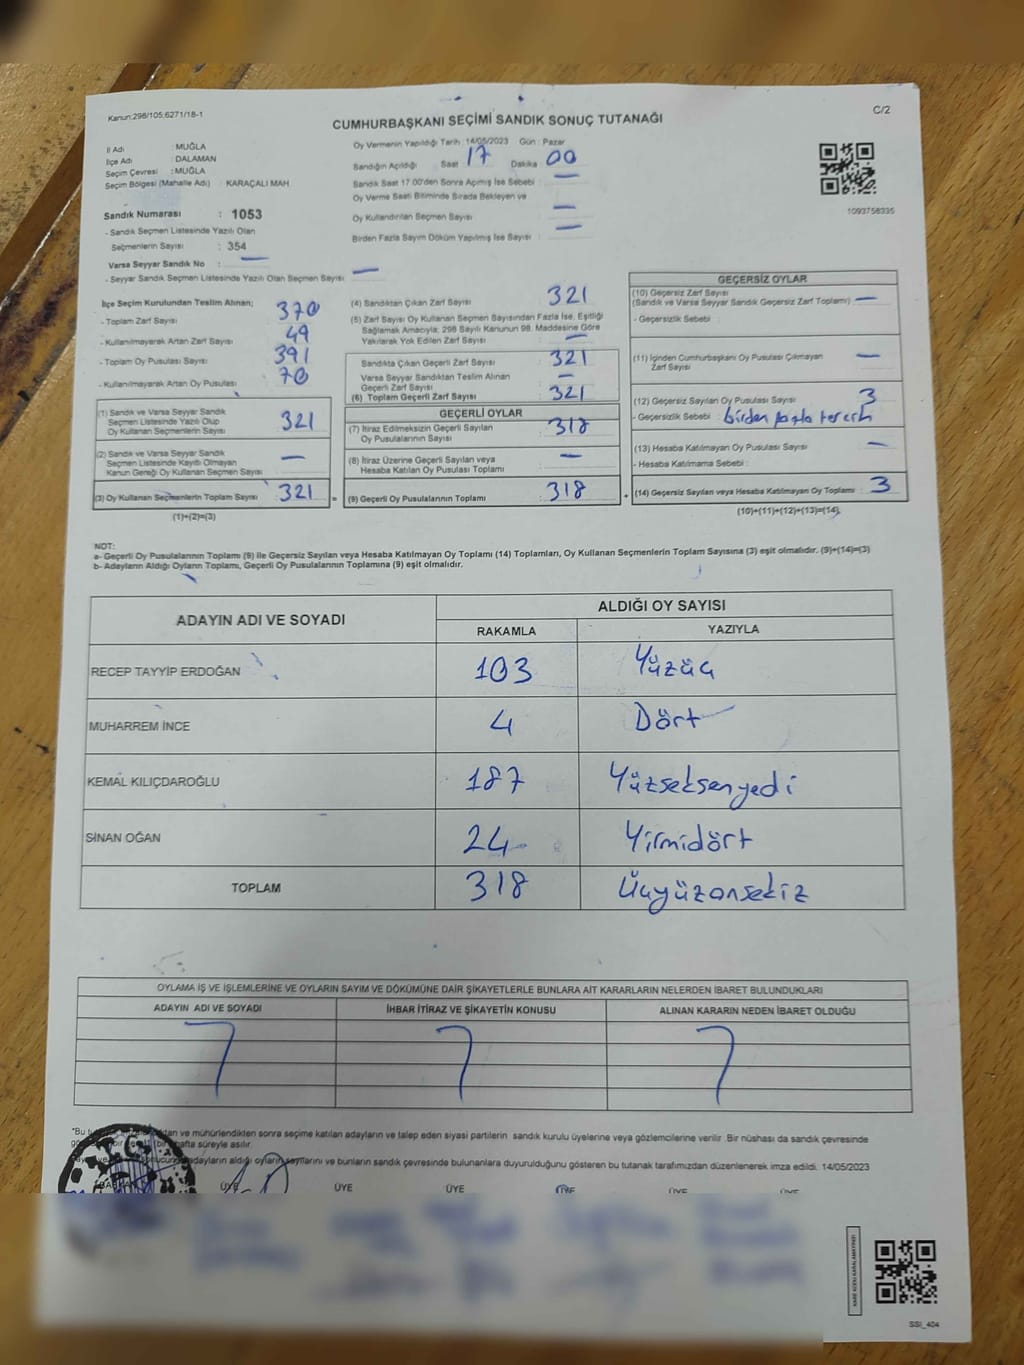 Kanun:298/105;6271/18-1
C/2
CUMHURBAŞKANI SEÇİMİ SANDIK SONUÇ TUTANAĞI
İl Adı : MUĞLA
İlçe Adı : DALAMAN
Seçim Çevresi : MUĞLA
Seçim Bölgesi (Mahalle Adı) : KARAÇALI MAH
Sandık Numarası : 1053
- Sandık Seçmen Listesinde Yazılı Olan
Seçmenlerin Sayısı : 354
Varsa Seyyar Sandık No : —
- Seyyar Sandık Seçmen Listesinde Yazılı Olan Seçmen Sayısı : —
Oy Vermenin Yapıldığı Tarih : 14/05/2023 Gün : Pazar
Sandığın Açıldığı Saat 17 Dakika 00
Sandık Saat 17.00'den Sonra Açılmış İse Sebebi : —
Oy Verme Saati Bitiminde Sırada Bekleyen ve
Oy Kullandırılan Seçmen Sayısı : —
Birden Fazla Sayım Döküm Yapılmış İse Sayısı : —
1093758335
İlçe Seçim Kurulundan Teslim Alınan;
- Toplam Zarf Sayısı : 370
- Kullanılmayarak Artan Zarf Sayısı : 49
- Toplam Oy Pusulası Sayısı : 391
- Kullanılmayarak Artan Oy Pusulası : 70
(1) Sandık ve Varsa Seyyar Sandık
Seçmen Listesinde Yazılı Olup
Oy Kullanan Seçmenlerin Sayısı : 321
(2) Sandık ve Varsa Seyyar Sandık
Seçmen Listesinde Kayıtlı Olmayan
Kanun Gereği Oy Kullanan Seçmen Sayısı : —
(3) Oy Kullanan Seçmenlerin Toplam Sayısı : 321 =
(1)+(2)=(3)
(4) Sandıktan Çıkan Zarf Sayısı : 321
(5) Zarf Sayısı Oy Kullanan Seçmen Sayısından Fazla İse, Eşitliği
Sağlamak Amacıyla; 298 Sayılı Kanunun 98. Maddesine Göre
Yakılarak Yok Edilen Zarf Sayısı : —
Sandıkta Çıkan Geçerli Zarf Sayısı : 321
Varsa Seyyar Sandıktan Teslim Alınan
Geçerli Zarf Sayısı : —
(6) Toplam Geçerli Zarf Sayısı : 321
GEÇERLİ OYLAR
(7) İtiraz Edilmeksizin Geçerli Sayılan
Oy Pusulalarının Sayısı : 318
(8) İtiraz Üzerine Geçerli Sayılan veya
Hesaba Katılan Oy Pusulası Toplamı : —
(9) Geçerli Oy Pusulalarının Toplamı : 318 +
GEÇERSİZ OYLAR
(10) Geçersiz Zarf Sayısı
(Sandık ve Varsa Seyyar Sandık Geçersiz Zarf Toplamı) : —
- Geçersizlik Sebebi :
(11) İçinden Cumhurbaşkanı Oy Pusulası Çıkmayan
Zarf Sayısı : —
(12) Geçersiz Sayılan Oy Pusulası Sayısı : 3
- Geçersizlik Sebebi : birden fazla tercih
(13) Hesaba Katılmayan Oy Pusulası Sayısı : —
- Hesaba Katılmama Sebebi :
(14) Geçersiz Sayılan veya Hesaba Katılmayan Oy Toplamı : 3
(10)+(11)+(12)+(13)=(14)
NOT:
a- Geçerli Oy Pusulalarının Toplamı (9) ile Geçersiz Sayılan veya Hesaba Katılmayan Oy Toplamı (14) Toplamları, Oy Kullanan Seçmenlerin Toplam Sayısına (3) eşit olmalıdır. (9)+(14)=(3)
b- Adayların Aldığı Oyların Toplamı, Geçerli Oy Pusulalarının Toplamına (9) eşit olmalıdır.
ADAYIN ADI VE SOYADI ALDIĞI OY SAYISI
RAKAMLA YAZIYLA
RECEP TAYYİP ERDOĞAN 103 Yüzüç
MUHARREM İNCE 4 Dört
KEMAL KILIÇDAROĞLU 187 Yüzseksenyedi
SİNAN OĞAN 24 Yirmidört
TOPLAM 318 Üçyüzonsekiz
OYLAMA İŞ VE İŞLEMLERİNE VE OYLARIN SAYIM VE DÖKÜMÜNE DAİR ŞİKAYETLERLE BUNLARA AİT KARARLARIN NELERDEN İBARET BULUNDUKLARI
ADAYIN ADI VE SOYADI İHBAR İTİRAZ VE ŞİKAYETİN KONUSU ALINAN KARARIN NEDEN İBARET OLDUĞU
ve mühürlendikten sonra seçime katılan adayların ve talep eden siyasi partilerin sandık kurulu üyelerine veya gözlemcilerine verilir. Bir nüshası da sandık çevresinde
hafta süreyle asılır.
adayların aldığı oyların sayılarını ve bunların sandık çevresinde bulunanlara duyurulduğunu gösteren bu tutanak tarafımızdan düzenlenerek imza edildi. 14/05/2023
BAŞKAN ÜYE ÜYE ÜYE ÜYE ÜYE ÜYE
SSI_404